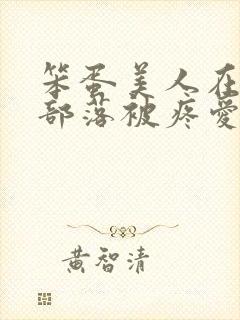 笨蛋美人在
部落被疼愛
黃智清